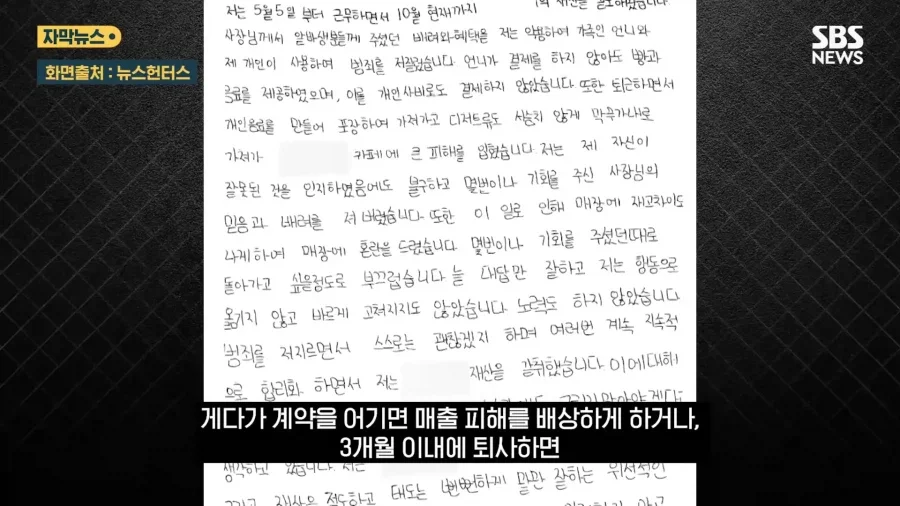 자막뉴스
SBS
NEWS
화면출처 : 뉴스헌터스
저는 5월 5일 부터 근무하면서 10월 현재까지
사장님께서 알바생분들께 주셨던 배려와 혜택을 저는 악용하여 가족인 언니와
제 개인이 사용하여 범죄를 저질렀습니다 언니가 결제를 하지 않아도 빵과
음료를 제공하였으며, 이를 개인사비로도 결제하지 않았습니다 또한 퇴근하면서
개인음료를 만들어 포장하여 가져가고 디저트류도 서슴치 않게 막무가내로
가져가 카페에 큰 피해를 입혔습니다 저는 제 자신이
잘못된 것을 인지하였음에도 불구하고 몇번이나 기회를 주신 사장님의
믿음과 배려를 져 버렸습니다 또한 이 일로 인해 매장에 재고차이도
나게하여 매장에 혼란을 드렸습니다 몇번이나 기회를 주셨던때로
돌아가고 싶을정도로 부끄럽습니다 늘 대답만 잘하고 저는 행동으로
옮기지 않고 바르게 고쳐지지도 않았습니다 노력도 하지 않았습니다
범죄를 저지르면서 스스로는 괜찮겠지 하며 여러번 계속 지속적
으로 합리화 하면서 저는 재산을 갈취했습니다 이에대해
게다가 계약을 어기면 매출 피해를 배상하게 하거나,
3개월 이내에 퇴사하면
생각하고 있습니다 저는 뻔뻔하게 말만 잘하는 위선적인